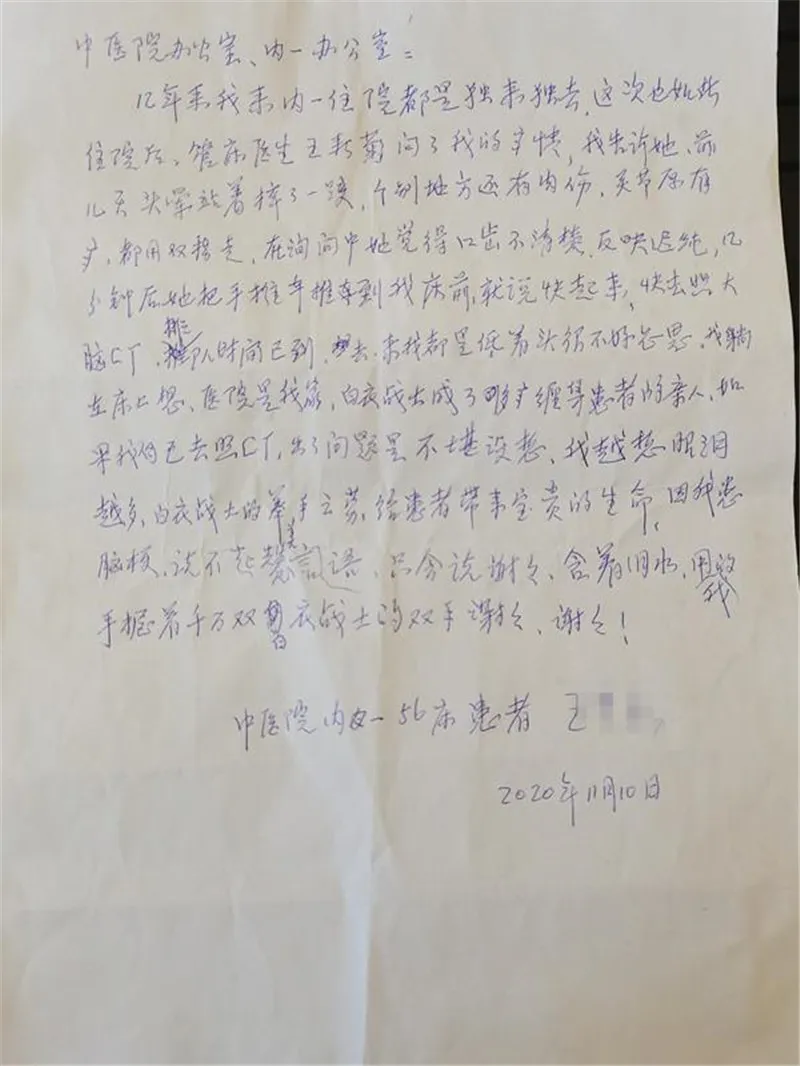 中医院办公室、内一办公室：
几年来我来内一住院都是独来独去，这次也如此
住院后、管床医生王彩菊问了我的疒情，我告诉她、前
几天头晕站着摔了一跤，个别地方还有内伤，关节原有
疒，都用双拐走，在询问中她觉得口齿不清楚，反映迟纯，几
分钟后她把手推车推车到我床前，就说快起来，快去照大
脑CT，排队时间已到，去、来我都是低着头很不好意思，我躺
在床上想，医院是我家，白衣战士成了疒缠身患者的亲人，如
果我自己去照CT，出了问题是不堪设想、我越想眼泪
越多，白衣战士的举手之劳，给患者带来宝贵的生命，因我患
脑梗，说不起赞美言语，只会说谢谢、含着泪水，用我
手握着千万双白衣战士的双手谢谢、谢谢！
中医院内一56床患者 王
2020年11月10日